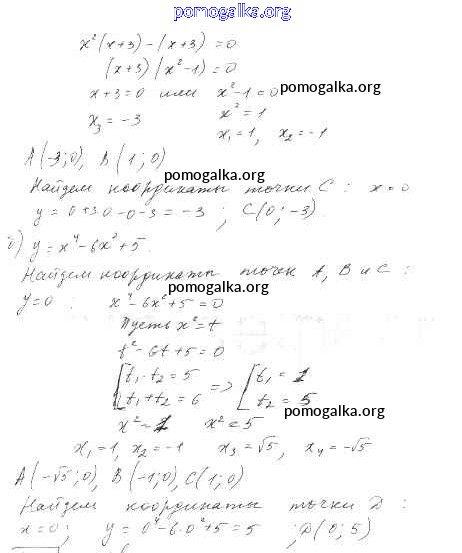 pomogalka.org
x²(x+3)-(x+3)=0
(x+3)(x²-1)=0
x+3=0 или x²-1=0
pomogalka.org
x₃=-3 x²=1
x₁=1, x₂=-1
A(-3;0), B(1;0)
pomogalka.org
Найдем координаты точки C: x=0
y=0+3·0-0-3=-3; C(0;-3)
б) y=x⁴-6x²+5.
Найдем координаты точек A, B и C:
pomogalka.org
y=0: x⁴-6x²+5=0
Пусть x²=t
t²-6t+5=0
t₁·t₂=5 t₁=1
t₁+t₂=6 => t₂=5
pomogalka.org
x²=1 x²=5
x₁=1, x₂=-1 x₃=√5, x₄=-√5
A(-√5;0), B(-1;0), C(1;0)
pomogalka.org
Найдем координаты точки D:
x=0; y=0⁴-6·0²+5=5; D(0;5)
pomogalka.org